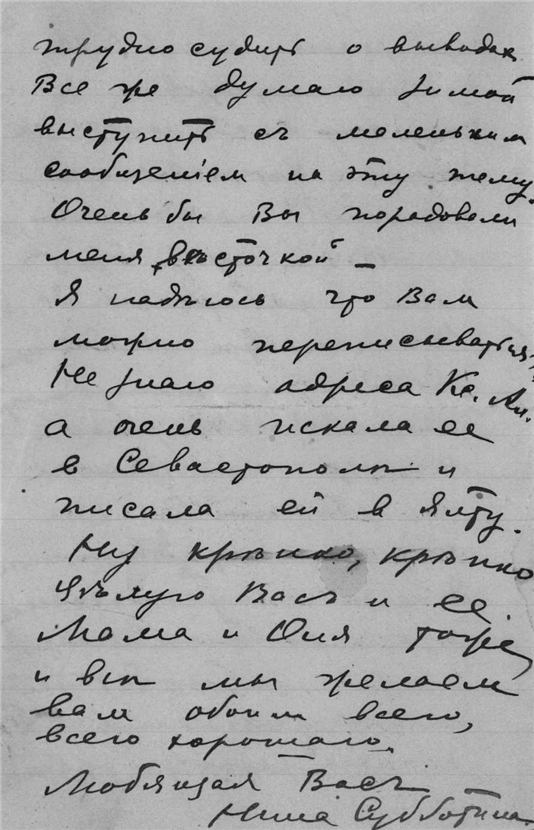 трудно судить о выводах
Все же думаю зимой
выступить съ маленьким
сообщеніем на эту тему.
Очень бы Вы порадовали
меня весточкой
Я надѣюсь что Вам
можно переписываться?
Не знаю адреса Кл. Ал.
а очень искала ее
в Севастополѣ и
писала ей в Ялту.
Ну крѣпко, крѣпко
цѣлую Васъ и ее.
Мама и Оля тоже,
и всѣ мы желаем
вам обоим всего,
всего хорошаго.
Любящая Васъ
Нина Субботина.